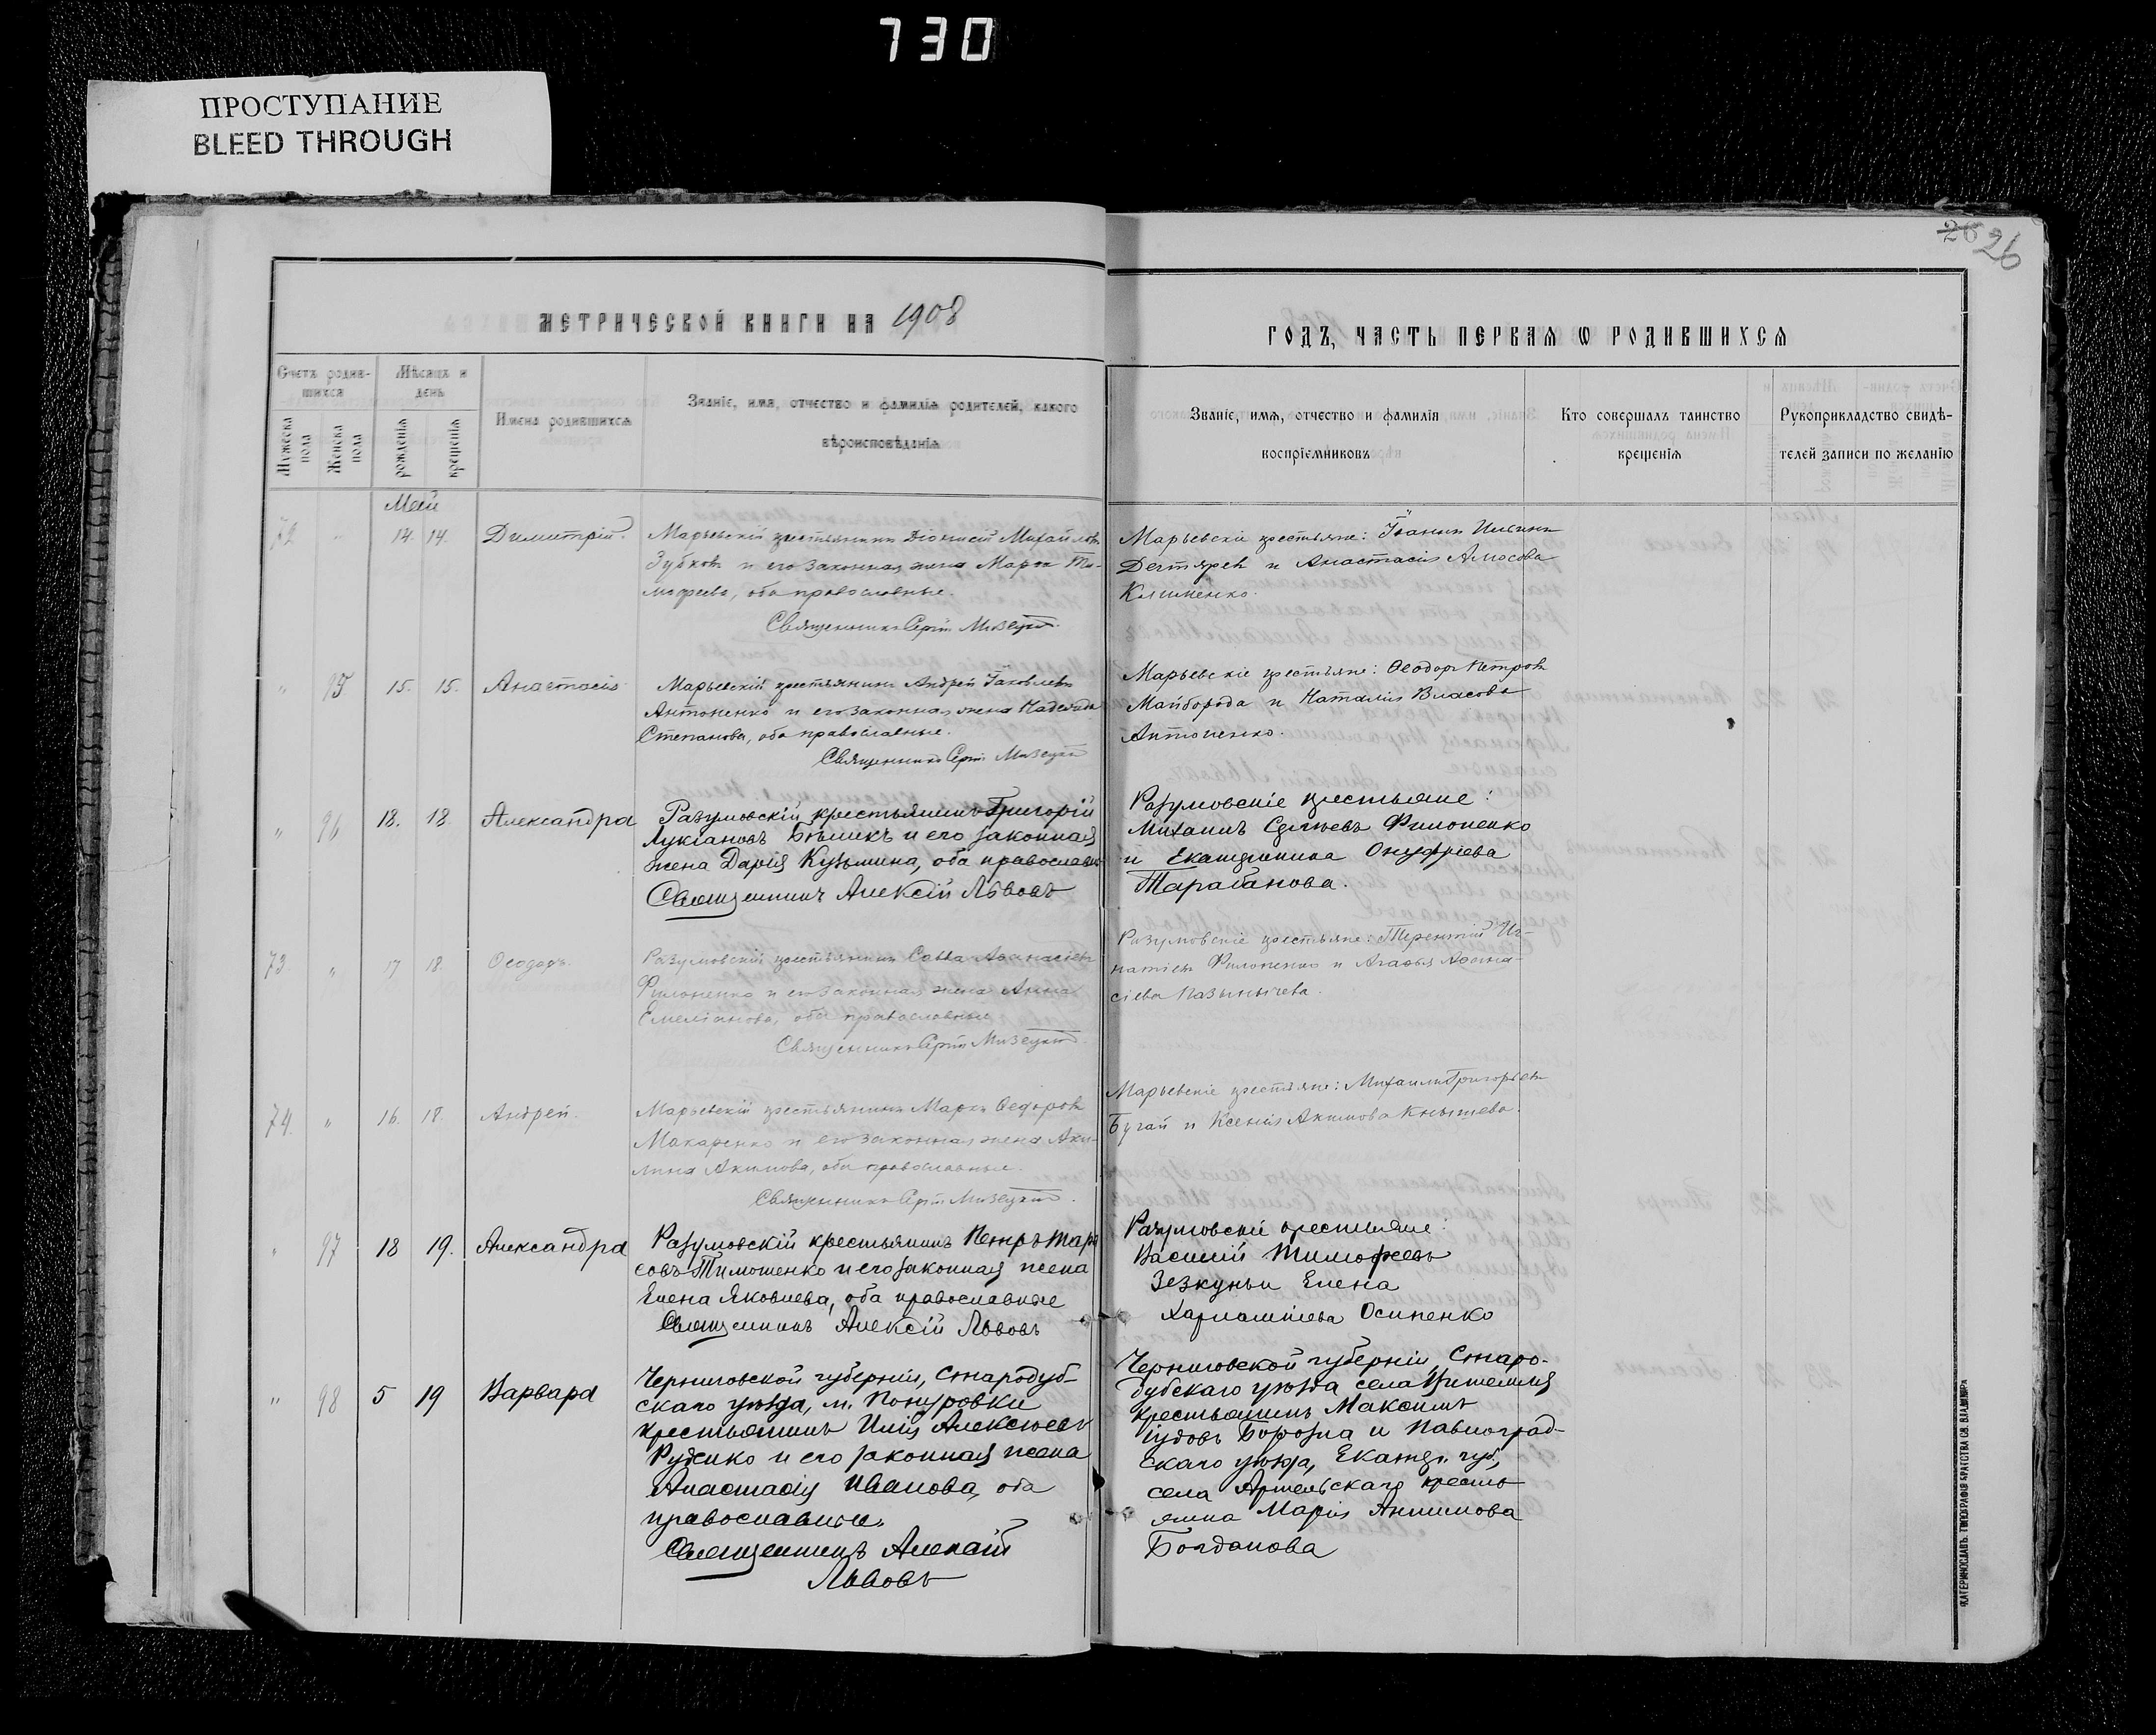 730
ПРОСТУПАНИЕ
BLEED THROUGH
26 26
МЕТРИЧЕСКОЙ КНИГИ НА 1908
ГОДЪ, ЧАСТЬ ПЕРВАЯ Ѡ РОДИВШИХСЯ
Счетъ родив-
шихся
Мѣсяцъ и
день
Мужеска
пола
Женска
пола
рожденія
крещенія
Имена родившихся
Званіе, имя, отчество и фамилія родителей, какого
вѣроисповѣданія
Званіе, имя, отчество и фамилія
воспріемниковъ
Кто совершалъ таинство
крещенія
Рукоприкладство свидѣ-
телей записи по желанію
Май
72 " 14. 14. Димитрій.
Марьевскій крестьянинъ Діонисій Михайловъ
Зубковъ и его законная жена Марѳа Ти-
моѳеева, оба православные.
Священникъ Сергій Мизецкій.
Марьевскіе крестьяне: Іоаннъ Ильинъ
Дегтяревъ и Анастасія Амосова
Клименко.
" 95 15. 15. Анастасія
Марьевскій крестьянинъ Андрей Іаковлевъ
Антоненко и его законная жена Надежда
Степанова, оба православные.
Священникъ Сергій Мизецкій
Марьевскіе крестьяне: Ѳеодоръ Петровъ
Майборода и Наталія Власова
Антоненко.
" 96 18. 18. Александра
Разумовскій крестьянинъ Григорій
Лукіановъ и его законная
жена Дарія Кузьмина, оба православн
Священникъ Алексій Львовъ
Разумовскіе крестьяне:
Михаилъ Сергѣевъ Филоненко
и Екатерина Онуфріева
Тарабанова.
73 " 17 18. Ѳеодоръ.
Разумовскій крестьянинъ Савва Аѳанасіевъ
Филоненко и его законная жена Анна
Емеліанова, оба православные
Священникъ Сергій Мизецкій.
Разумовскіе крестьяне: Терентій Иг-
натіевъ Филоненко и Агаѳья Аѳана-
сіева
74. " 16. 18. Андрей.
Марьевскій крестьянинъ Маркъ Ѳедоровъ
Макаренко и его законная жена Аки-
лина Акимова, оба православные.
Священникъ Сергій Мизецкій.
Марьевскіе крестьяне: Михаилъ Григорьевъ
Бугай и Ксенія Акимова Кнышева.
" 97 18 19. Александра
Разумовскій крестьянинъ Петръ Тара
совъ Тимошенко и его законная жена
Елена Яковлева, оба православные
Священникъ Алексій Львовъ
Разумовскіе крестьяне:
Василій Тимофеевъ
Елена
Харлампіева Осипенко
" 98 5 19 Варвара
Черниговской губерніи, Стародуб-
скаго уѣзда, м. Понуровки
крестьянинъ Илія Алексѣевъ
Руденко и его законная жена
Анастасія Иванова, оба
православные.
Священникъ Алексій
Львовъ
Черниговской губерніи, Старо-
дубскаго уѣзда села
крестьянинъ Максимъ
Іудовъ Борозна и Павлоград-
скаго уѣзда, Екатер. губ,
села Артельскаго кресть
янка Марія Антипова
Богданова
ЕКАТЕРИНОСЛАВЪ. ТИПОГРАФІЯ БРАТСТВА СВ. ВЛАДИМІРА